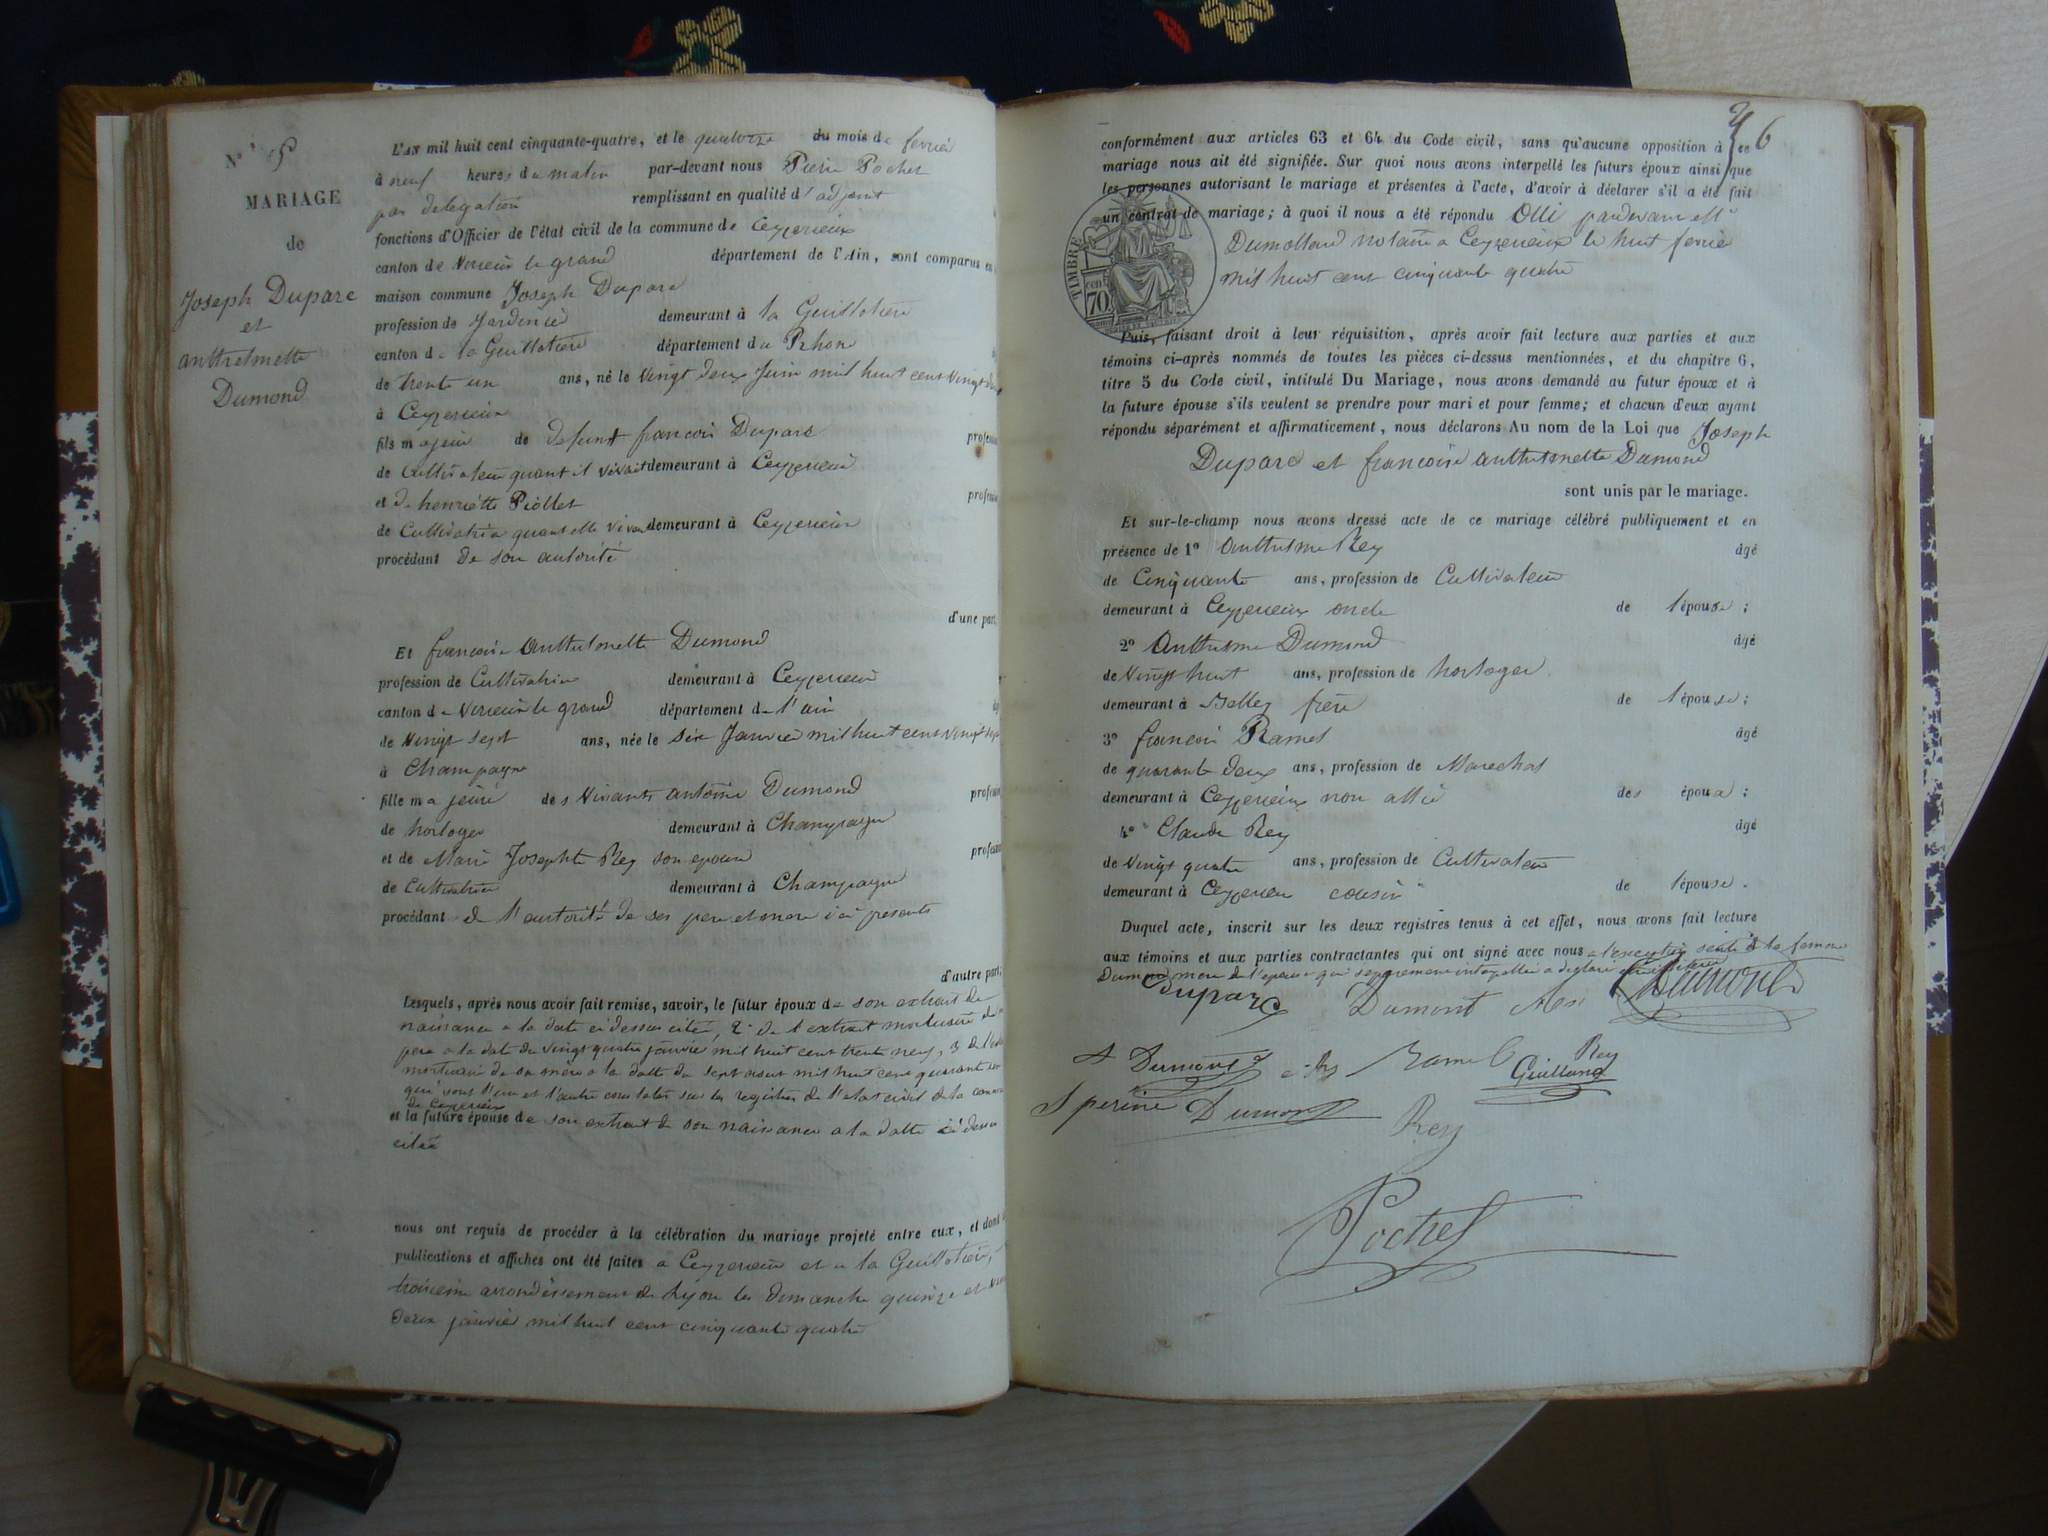 N° 5
MARIAGE
de
Joseph Duparc
et
anthelmette
Dumond
L'AN mil huit cent cinquante-quatre, et le quatorze du mois de fevrier
à neuf heures du matin par-devant nous Pierre Pochet
par delegation remplissant en qualité d'adjoint
fonctions d'Officier de l'état civil de la commune de Ceyzerieux
canton de Virieux le grand département de l'Ain, sont comparus en
maison commune Joseph Duparc
profession de Jardinier demeurant à la Guillotiere
canton de la Guillotiere département du Rhone
de trente un ans, né le vingt deux Juin mil huit cent vingt
à Ceyzerieux
fils majeur de defunt francois Duparc profession
de Cultivateur quant il vivait demeurant à Ceyzerieux
et de henriette Piollet profession
de Cultivatrice quant elle vivait demeurant à Ceyzerieux
procédant de son autorité
d'une part
Et francoise Anthelmette Dumond
profession de Cultivatrice demeurant à Ceyzerieux
canton de Virieux le grand département de l'ain
de vingt sept ans, née le six Janvier mil huit cent vingt sept
à Champagne
fille majeure des vivants antoine Dumond profession
de horloger demeurant à Champagne
et de Marie Josephte Rey son epouse profession
de Cultivatrice demeurant à Champagne
procédant de l'autorité de ses pere et mere ici presents
d'autre part;
Lesquels, après nous avoir fait remise, savoir, le futur époux de son extrait de
naissance a la date ci dessus citée, 2° de l'extrait mortuaire de
pere a la date du vingt quatre janvier mil huit cent trente neuf, 3 de l'
mortuaire de sa mere a la datte du sept aout mil huit cent quarante
qui sont l'un et l'autre constatés sur les registres de l'etat civil de la commune
de Ceyzerieux
et la future épouse de son extrait de son naissance a la datte ci dessus
citée
nous ont requis de procéder à la célébration du mariage projeté entre eux, et dont
publications et affiches ont été faites a Ceyzerieux et a la Guillotiere,
troisieme arrondissement de Lyon les dimanche quinze et vingt
deux janvier mil huit cent cinquante quatre
46
conformément aux articles 63 et 64 du Code civil, sans qu'aucune opposition à ce
mariage nous ait été signifiée. Sur quoi nous avons interpellé les futurs époux ainsi que
les personnes autorisant le mariage et présentes à l'acte, d'avoir à déclarer s'il a été fait
un contrat de mariage; à quoi il nous a été répondu Oui pardevant Mr
Dumollard notaire a Ceyzerieux le huit fevrier
mil huit cent cinquante quatre
TIMBRE
70 cent
Puis, faisant droit à leur réquisition, après avoir fait lecture aux parties et aux
témoins ci-après nommés de toutes les pièces ci-dessus mentionnées, et du chapitre 6,
titre 5 du Code civil, intitulé Du Mariage, nous avons demandé au futur époux et à
la future épouse s'ils veulent se prendre pour mari et pour femme; et chacun d'eux ayant
répondu séparément et affirmativement, nous déclarons Au nom de la Loi que Joseph
Duparc et francoise anthelmette Dumond
sont unis par le mariage.
Et sur-le-champ nous avons dressé acte de ce mariage célébré publiquement et en
présence de 1° Anthelme Rey âgé
de Cinquante ans, profession de Cultivateur
demeurant à Ceyzerieux oncle de l'épouse;
2° Anthelme Dumond âgé
de vingt huit ans, profession de horloger
demeurant à Belley frere de l'épouse;
3° francois Ramel âgé
de quarante deux ans, profession de Marechal
demeurant à Ceyzerieux non allié des époux;
4° Claude Rey âgé
de vingt quatre ans, profession de Cultivateur
demeurant à Ceyzerieu cousin de l'épouse.
Duquel acte, inscrit sur les deux registres tenus à cet effet, nous avons fait lecture
aux témoins et aux parties contractantes qui ont signé avec nous a l'exception de la femme
Dumond mere de l'epouse qui interpellée a declaré
Duparc Dumont Dumond
A Dumont Ramel Rey
Guilland
Sperine Dumont Rey
Pochet